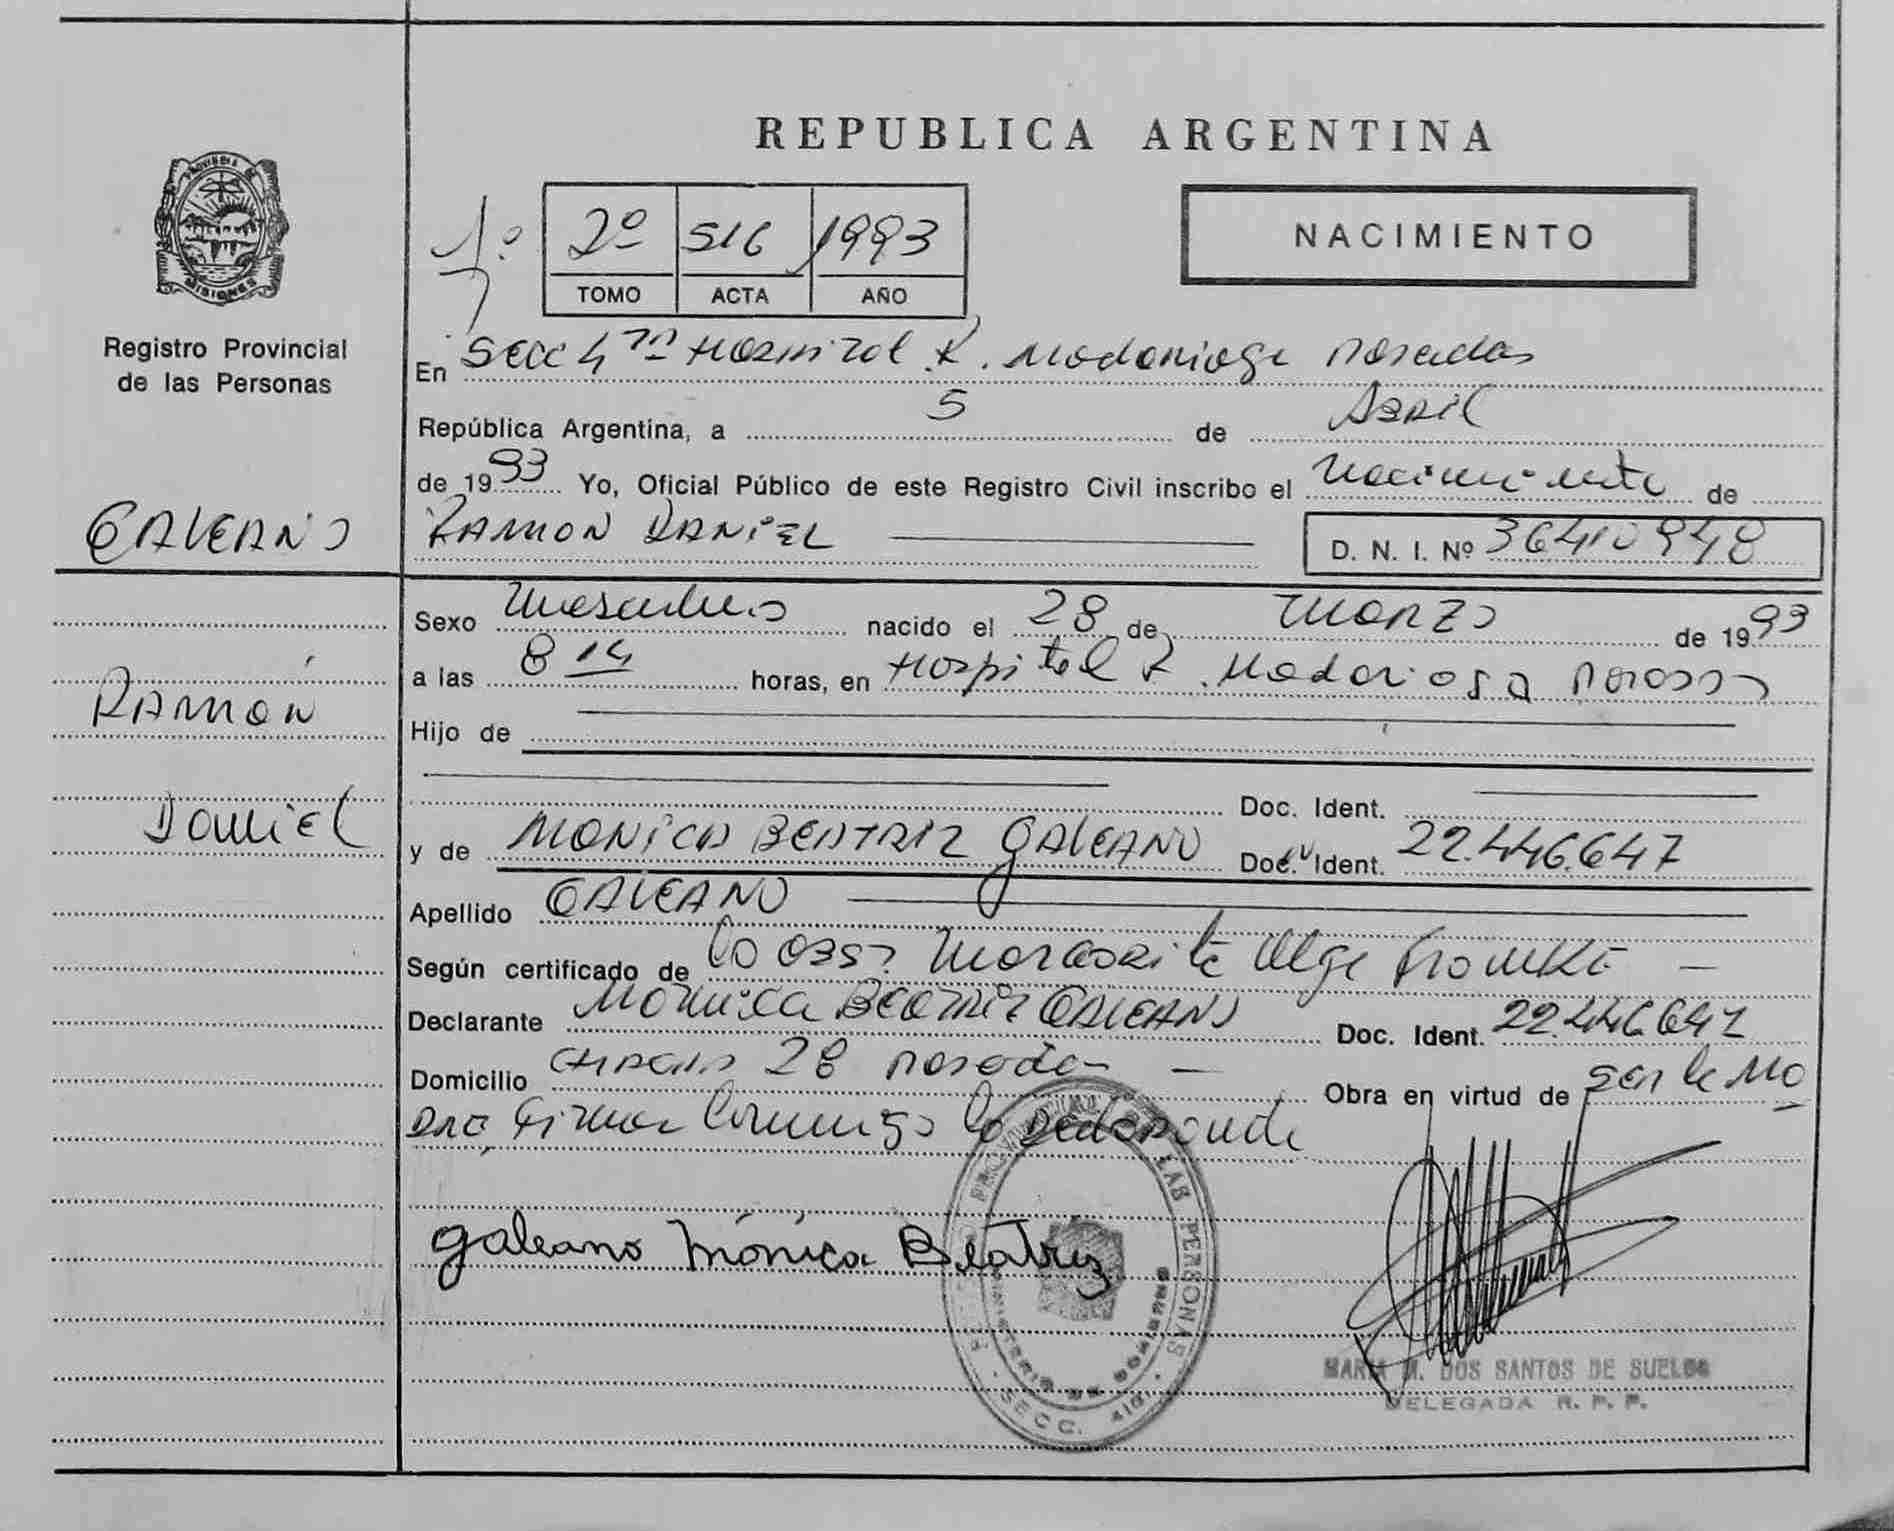 REPUBLICA ARGENTINA
PROVINCIA DE
MISIONES
Registro Provincial
de las Personas
2º 516 1993
TOMO ACTA AÑO
NACIMIENTO
En Secc 4ta Hospital R. Madariaga Posadas
República Argentina, a 5 de Abril
de 1993 Yo, Oficial Público de este Registro Civil inscribo el Nacimiento de
GALEANO
RAMON DANIEL D. N. I. Nº 36410948
Sexo Masculino nacido el 28 de Marzo de 1993
a las 8 14 horas, en Hospital R. Madariaga Posadas
RAMÓN
Hijo de
Doc. Ident.
Daniel
y de MONICA BEATRIZ GALEANO Doc. Ident. 22.446.647
Apellido GALEANO
Según certificado de la obst. Margarita Olga
Declarante Mónica Beatriz GALEANO Doc. Ident. 22.446.647
Domicilio 28 Posadas Obra en virtud de ser la Ma
dre, Firma Conmigo la Declarante
Galeano Mónica Beatriz
REGISTRO PROVINCIAL DE LAS PERSONAS
MINISTERIO DE GOBIERNO
SECC. 4ta
MARIA M. DOS SANTOS DE SUELDO
DELEGADA R. P. P.